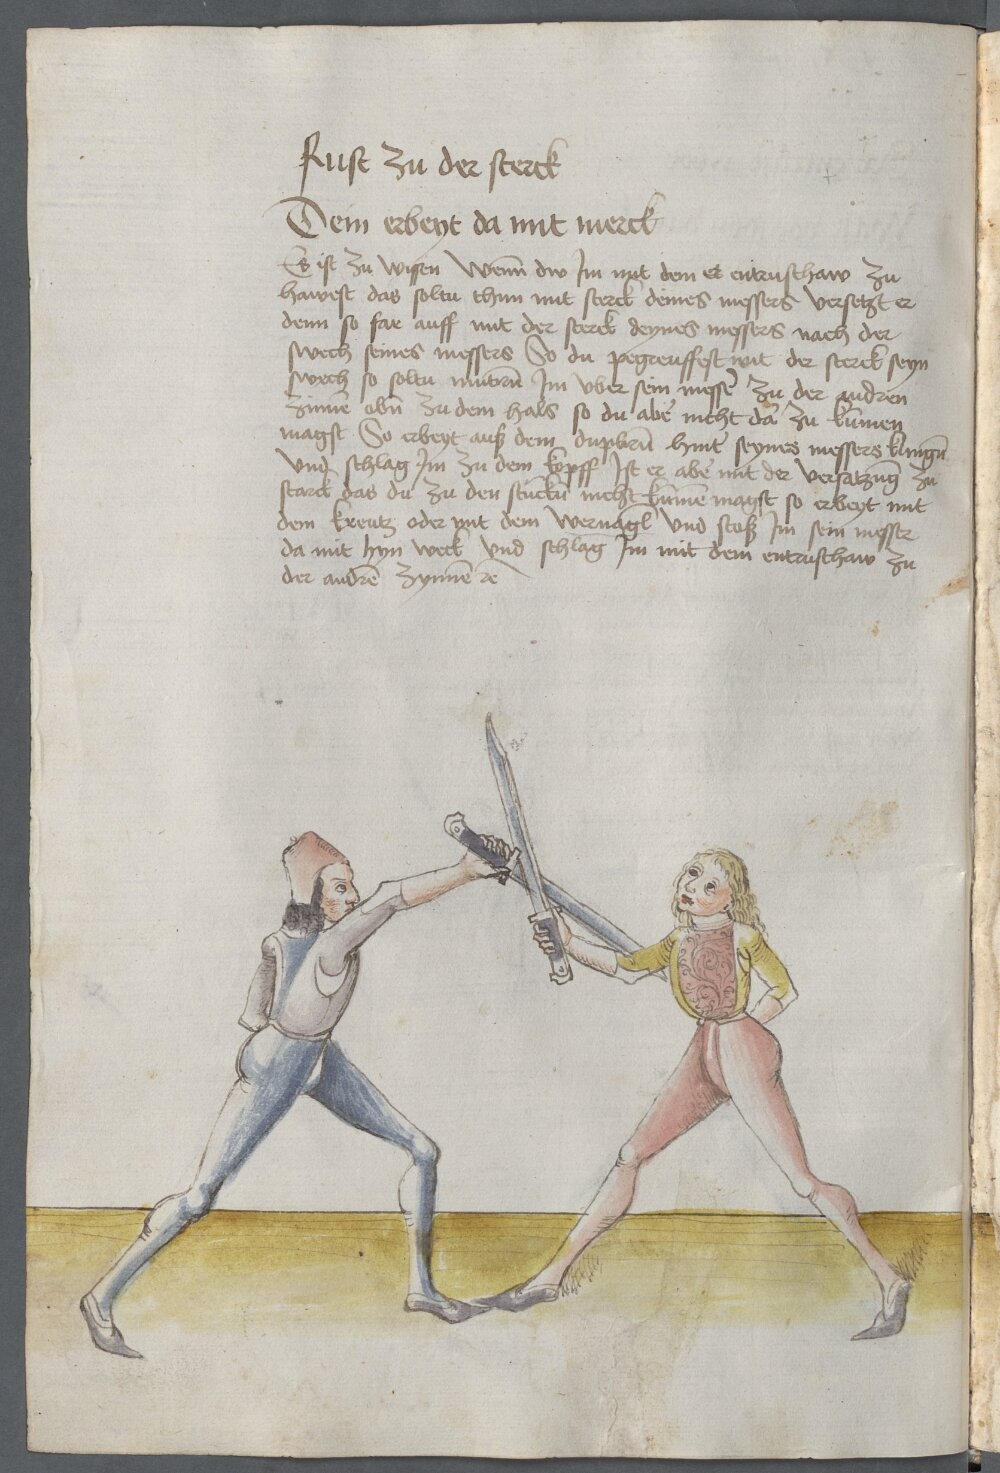 Rust zu der sterck
Dein erbeyt da mit merck
Es ist zu wissen Wenn dw Im mit dem entrusthaw zu
hawest das soltu thun mit sterck deines messers versetzt er
denn so far auff mit der sterck deynes messers nach der
swech seines messers So du pegreuffest mit der sterck seyn
swech so soltu mutirn Im vber sein messer zu der andren
zinnē obn zu dem hals so du abē nicht da zu kummen
magst So erbeyt auß dem duplirn hintē seynes messers klingn
vnd schlag Im zu dem kopff Ist er abē mit der versatzūg zu
starck das du zu den stuckn nicht kumē magst so erbeyt mit
dem kreutz oder mit dem wernagl vnd stoß Im sein messer
da mit hyn weck vnd schlag Im mit dem entrusthaw zu
der andrē zynnē